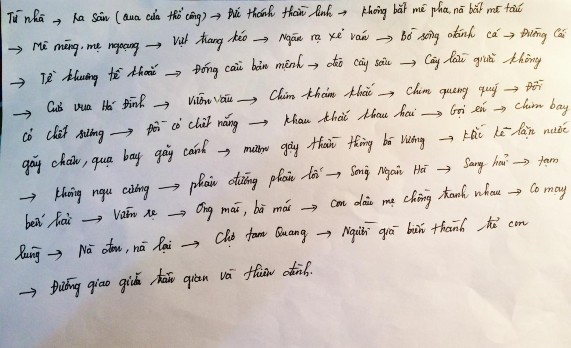 Từ nhà → Ra sân (qua cửa thổ công) → Đức thánh thần linh → không bắt mẹ pha, nã bắt mẹ tấu
→ Mê mêng, mẹ ngoạng → Vựt trang kéo → Ngăn ra xẻ ván → Bờ sông đánh cá → Đường Cái
→ Tệ khuông tệ khoắc → Đóng cầu bản mệnh → đẽo cây sâu → Cây lầu giữa không
→ Cửa vua Hà Đình → Vườn vầu → Chim khảm khắc → chim queng quý → Đồi
cỏ chết sương → Đồi cỏ chết nắng → khau khắc khau hai → Gọi én → chim bay
gãy chân, quạ bay gãy cánh → mượn gậy thần thông bà Vương → Khắc kẻ lặn nước
→ không ngu cương → phân đường phân lối → Sông Ngân Hà → Sang hải → tạm
bến hải → Vườn ve → Ông mái, bà mái → con dâu mẹ chồng tranh nhau → Co may
lùng → Nà đon, nà lại → Chợ tam Quang → Người già biến thành trẻ con
→ Đường giao giữa trần gian và thiên đình.